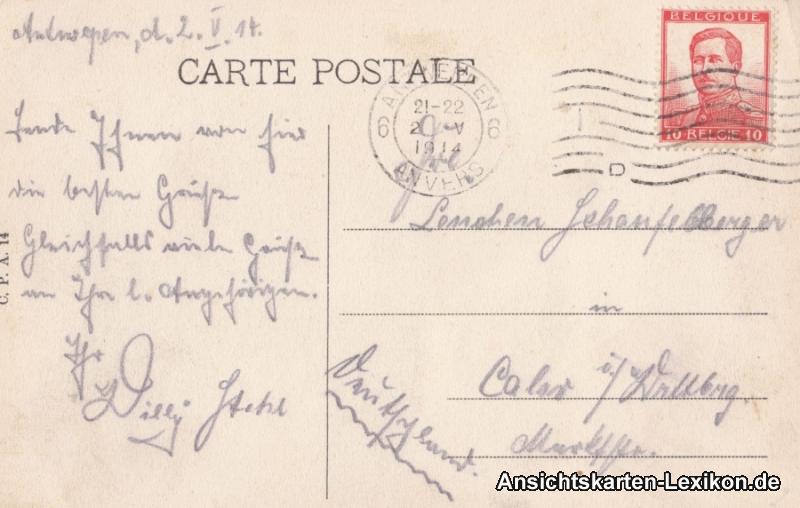 Antwerpen, d. 2. V. 14.
CARTE POSTALE
BELGIQUE
10 BELGIE 10
ANTWERPEN
6 6
21-22
2 V
1914
ANVERS
D
Sende Ihnen von hier
die besten Grüße
Gleichfalls viele Grüße
an Ihre l. Angehörigen.
Ihr
Willy
C. P. A. 14
Lenchen Schaufelberger
in
Calw i/ Württbg.
Marktstr.
Deutschland.
Ansichtskarten-Lexikon.de